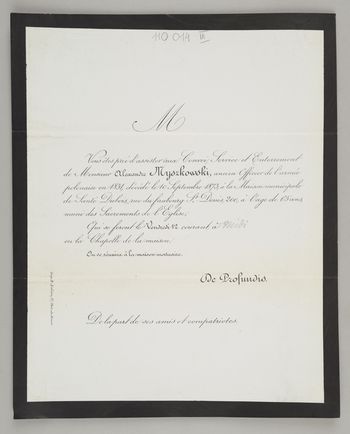 110 014 III
M
Vous êtes prié d'assister aux Convoi, Service et Enterrement
de Monsieur Alexandre Myszkowski, ancien Officier de l'armée
polonaise en 1831, décédé le 10 Septembre 1873, à la Maison municipale
de Santé Dubois, rue du faubourg St Denis, 200, à l'âge de 65 ans,
muni des Sacrements de l'Eglise;
Qui se feront le Vendredi 12 courant à Midi
en la Chapelle de la maison.
On se réunira à la maison mortuaire.
De Profundis.
De la part de ses amis et compatriotes.